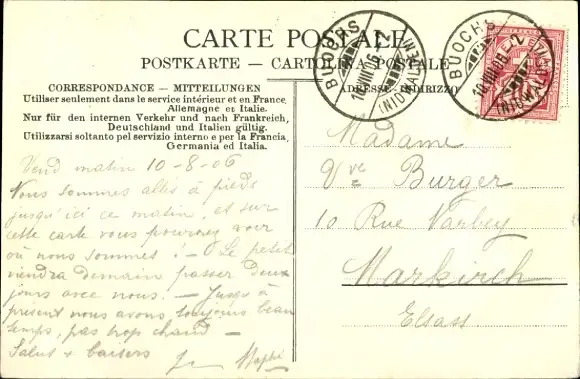 CARTE POSTALE
POSTKARTE — CARTOLINA POSTALE
CORRESPONDANCE — MITTEILUNGEN
Utiliser seulement dans le service intérieur et en France,
Allemagne et Italie.
Nur für den internen Verkehr und nach Frankreich,
Deutschland und Italien gültig.
Utilizzarsi soltanto pel servizio interno e per la Francia,
Germania ed Italia.
Vend matin 10-8-06
Nous sommes allés à pieds
jusqu'ici ce matin, et sur
cette carte vous pourrez voir
où nous sommes ! — Le petit
viendra demain passer deux
jours avec nous. — Jusqu'à
présent nous avons toujours beau
temps, pas trop chaud —
Salut & baisers
ADRESSE - INDIRIZZO
Madame
Vve Burger
10 Rue
Markirch
Elsass
BUOCHS
(NIDWALDEN)
BUOCHS
(NIDWALDEN)